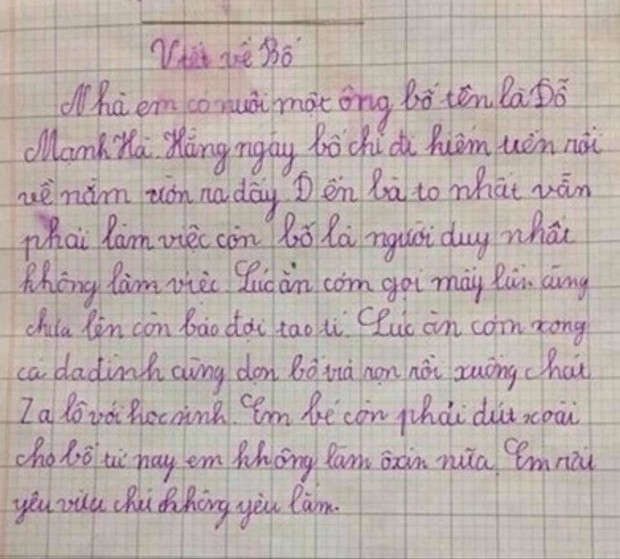 Viết về Bố
Nhà em có nuôi một ông bố tên là Đỗ
Mạnh Hà. Hằng ngày bố chỉ đi hiếm tiền rồi
về nằm ườn ra đấy. Đ ến bà to nhất vẫn
phải làm việc còn bố là người duy nhất
không làm việc. Lúc ăn cơm gọi mấy lần cũng
chưa lên còn bảo đợi tao tí. Lúc ăn cơm xong
cả da đình cùng dọn bố trả rọn rồi xuống chát
Za lô với học sinh. Em bé còn phải đút xoài
cho bố từ nay em không làm ôxin nữa. Em rất
yêu chứ không yêu lắm.